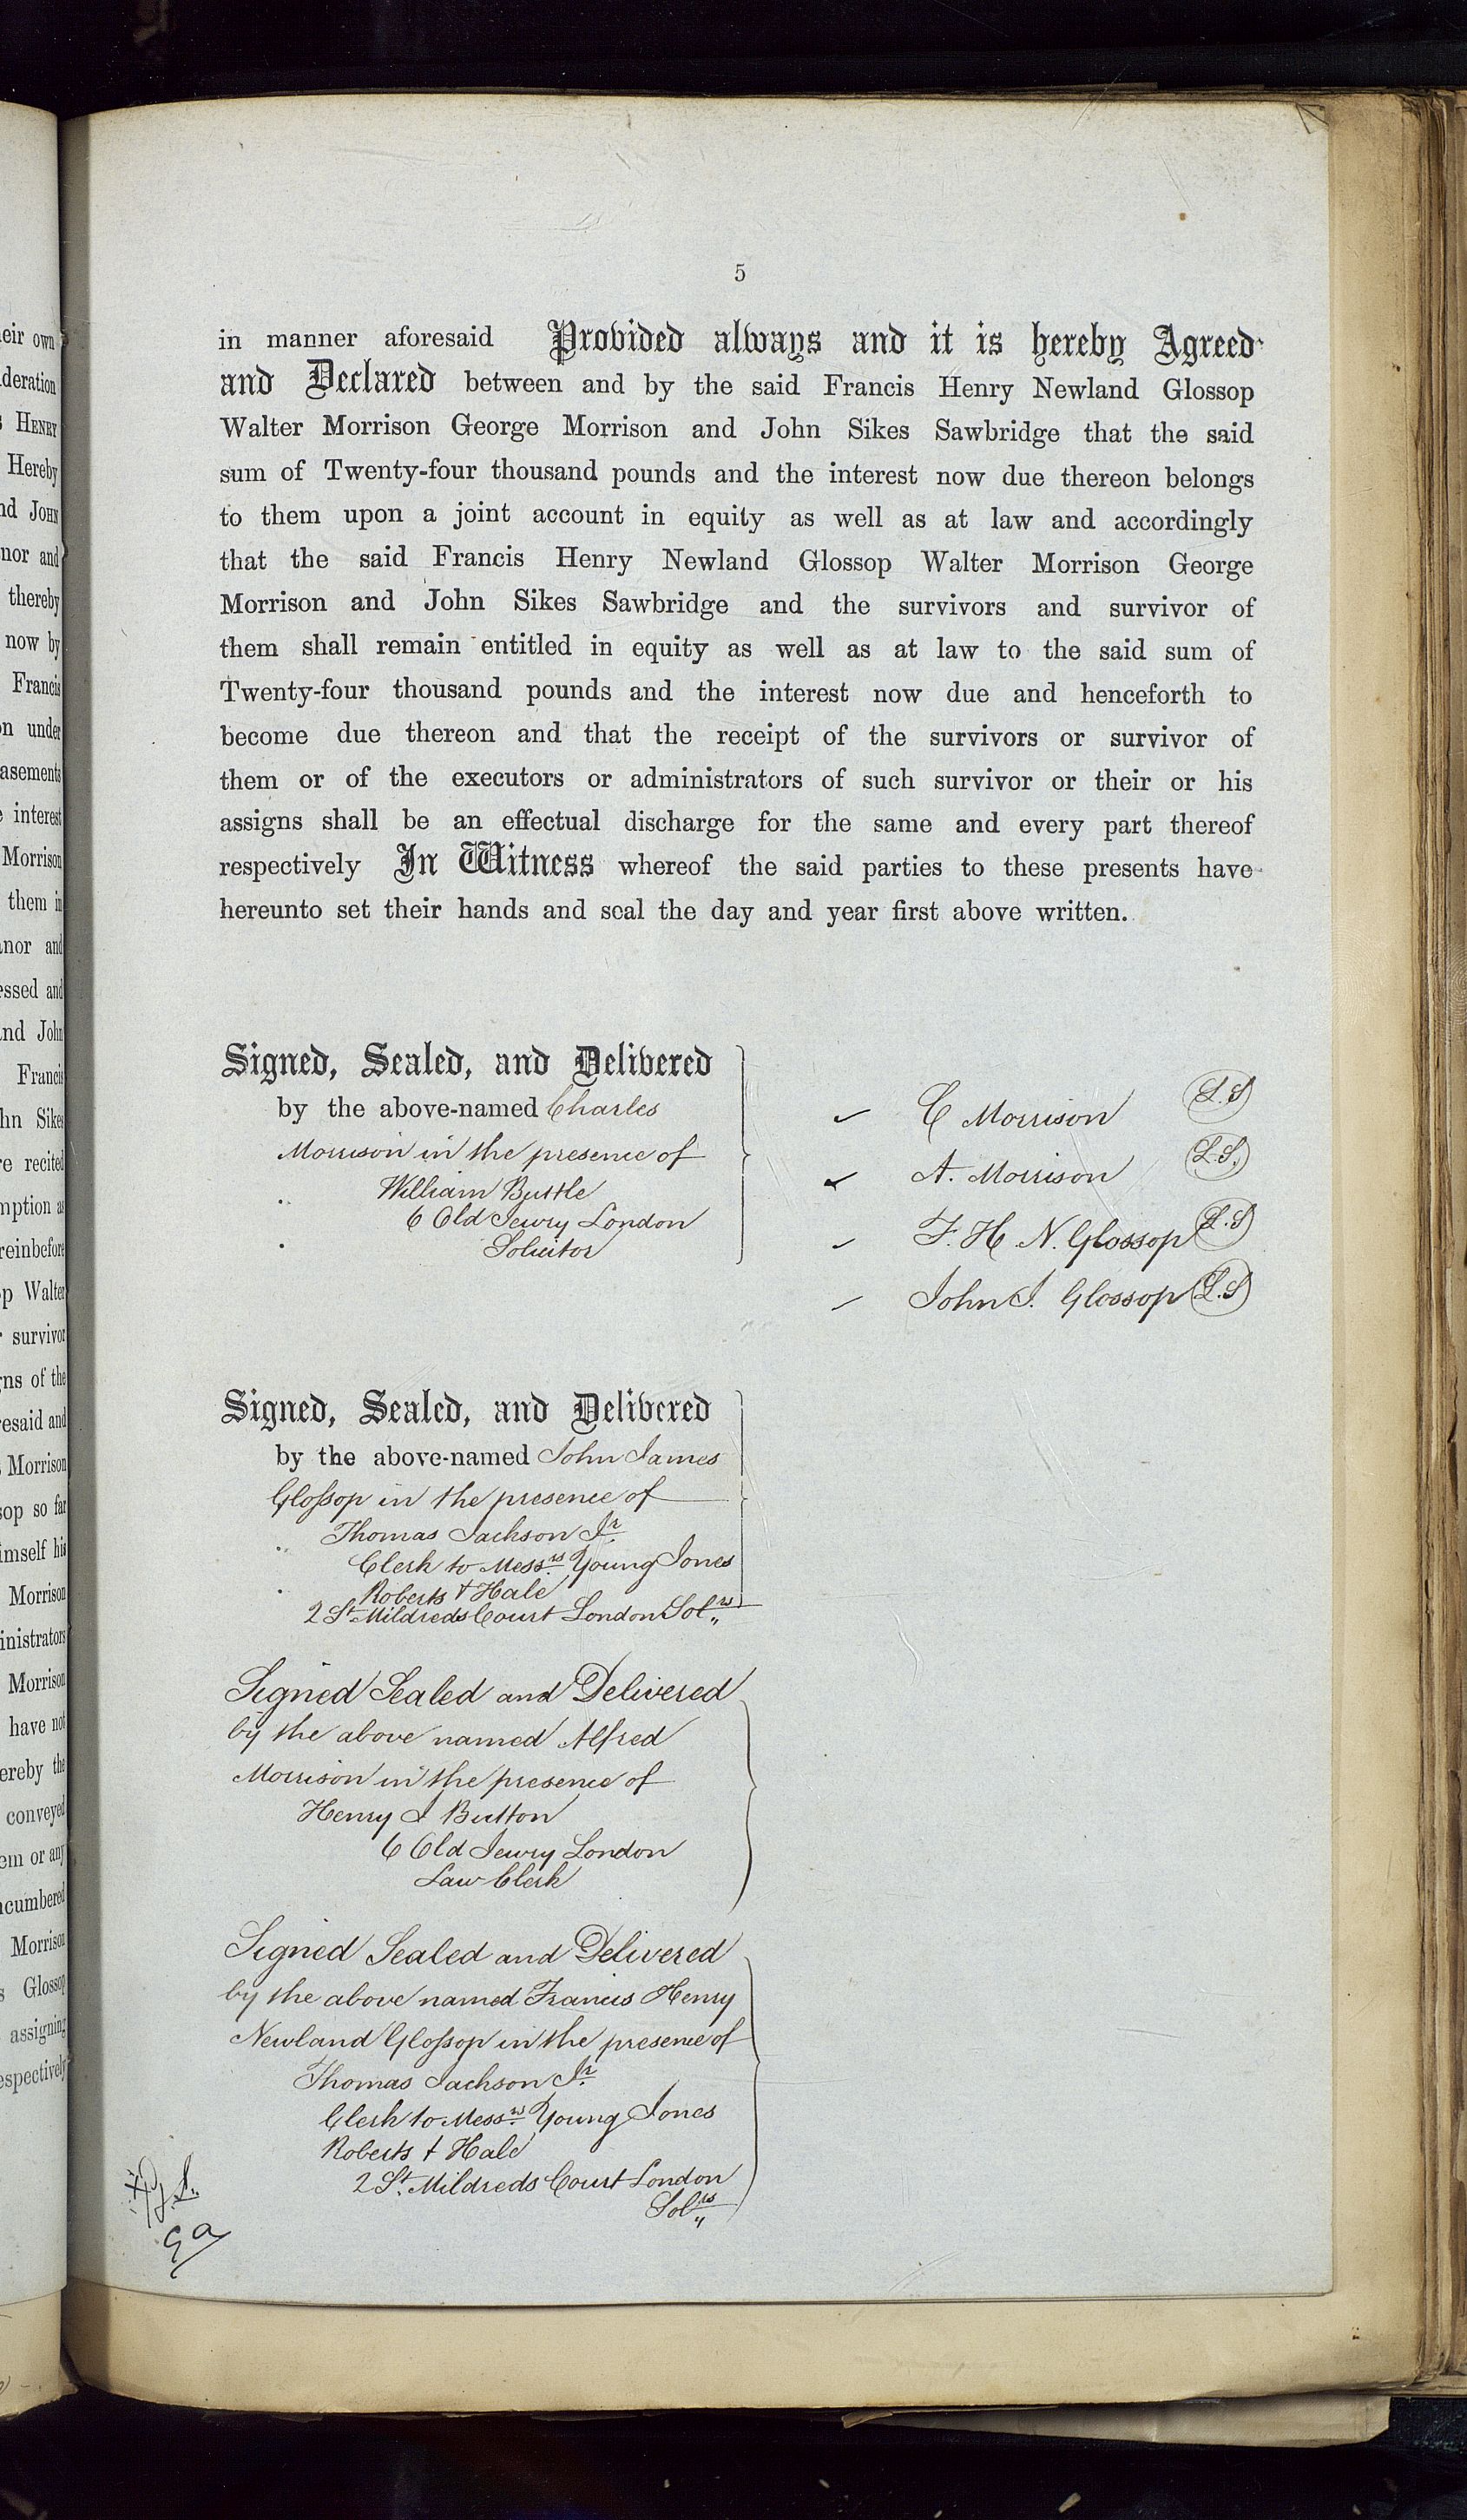 5
in manner aforesaid Provided always and it is hereby Agreed
and Declared between and by the said Francis Henry Newland Glossop
Walter Morrison George Morrison and John Sikes Sawbridge that the said
sum of Twenty-four thousand pounds and the interest now due thereon belongs
to them upon a joint account in equity as well as at law and accordingly
that the said Francis Henry Newland Glossop Walter Morrison George
Morrison and John Sikes Sawbridge and the survivors and survivor of
them shall remain entitled in equity as well as at law to the said sum of
Twenty-four thousand pounds and the interest now due and henceforth to
become due thereon and that the receipt of the survivors or survivor of
them or of the executors or administrators of such survivor or their or his
assigns shall be an effectual discharge for the same and every part thereof
respectively In Witness whereof the said parties to these presents have
hereunto set their hands and seal the day and year first above written.
Signed, Sealed, and Delivered
by the above-named Charles
Morrison in the presence of
William Buttle
6 Old Jewry London
Solicitor
C Morrison L.S
A. Morrison L.S.
F. H. N. Glossop L.S
John J. Glossop L.S
Signed, Sealed, and Delivered
by the above-named John James
Gloſsop in the presence of
Thomas Jackson Jr
Clerk to Messrs Young Jones
Roberts & Hale
2 St Mildreds Court London Solrs
Signed Sealed and Delivered
by the above named Alfred
Morrison in the presence of
Henry J Button
6 Old Jewry London
Law Clerk
Signed Sealed and Delivered
by the above named Francis Henry
Newland Gloſsop in the presence of
Thomas Jackson Jr
Clerk to Messrs Young Jones
Roberts & Hale
2 St. Mildreds Court London
Solrs
eir own
deration
HENRY
Hereby
nd JOHN
nor and
thereby
now by
Francis
n under
asements
interest
Morrison
them in
nor and
essed and
nd John
Francis
hn Sikes
e recited
mption as
reinbefore
p Walter
survivor
ns of the
esaid and
Morrison
sop so far
imself his
Morrison
inistrators
Morrison
have not
ereby the
conveyed
em or any
ncumbered
Morrison
s Glossop
assigning
espectively